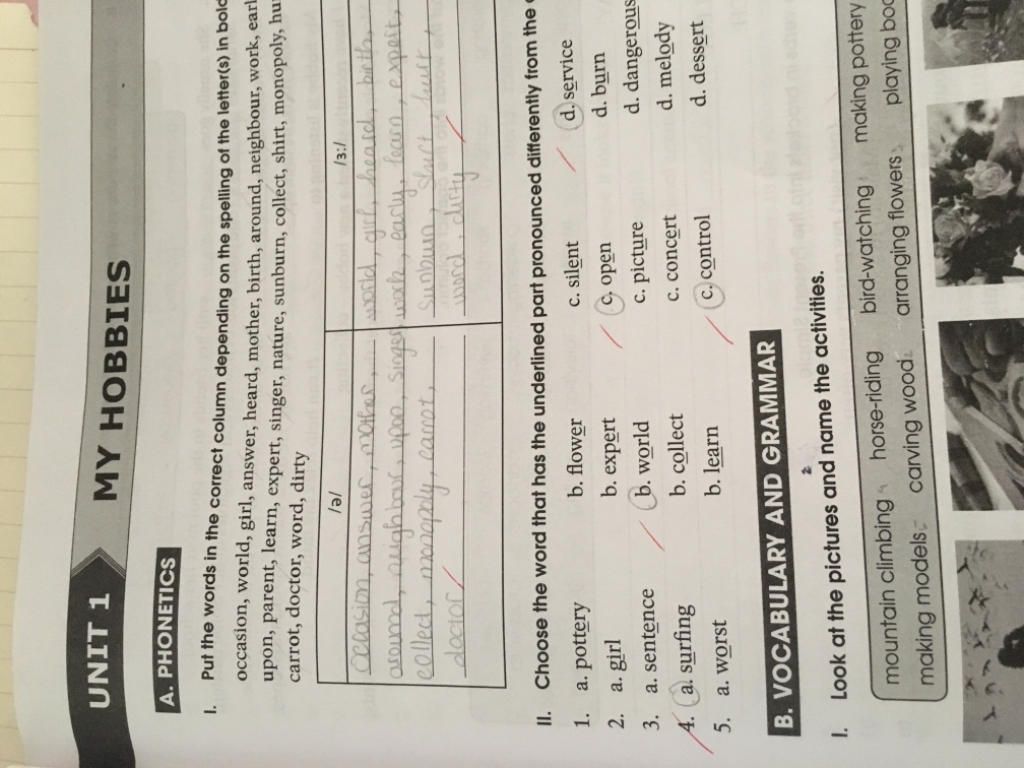 UNIT 1 MY HOBBIES
A. PHONETICS
I. Put the words in the correct column depending on the spelling of the letter(s) in bold
occasion, world, girl, answer, heard, mother, birth, around, neighbour, work, earl
upon, parent, learn, expert, singer, nature, sunburn, collect, shirt, monopoly, hu
carrot, doctor, word, dirty
/ə/ /ɜ:/
occasion, answer, mother, world, girl, heard, birth,
around, neighbour, upon, singer work, early, learn, expert,
collect, monopoly, carrot, sunburn,
doctor word, dirty
II. Choose the word that has the underlined part pronounced differently from the
1. a. pottery b. flower c. silent d. service
2. a. girl b. expert c. open d. burn
3. a. sentence b. world c. picture d. dangerous
4. a. surfing b. collect c. concert d. melody
5. a. worst b. learn c. control d. dessert
B. VOCABULARY AND GRAMMAR
I. Look at the pictures and name the activities.
mountain climbing horse-riding bird-watching making pottery
making models carving wood arranging flowers playing boa